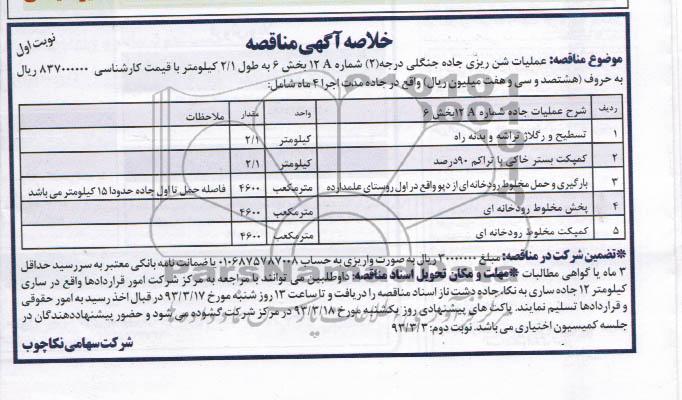 خلاصه آگهی مناقصه
نوبت اول
موضوع مناقصه: عملیات شن ریزی جاده جنگلی درجه(۲) شماره ۱۲ A بخش ۶ به طول ۲/۱ کیلومتر با قیمت کارشناسی ۸۳۷۰۰۰۰۰۰ ریال
به حروف (هشتصد و سی و هفت میلیون ریال) واقع در جاده مدت اجرا ۴ ماه شامل:
ردیف شرح عملیات جاده شماره ۱۲ A بخش ۶ واحد مقدار ملاحظات
۱ تسطیح و رگلاژ تراشه و بدنه راه کیلومتر ۲/۱
۲ کمپکت بستر خاکی با تراکم ۹۰درصد کیلومتر ۲/۱
۳ بارگیری و حمل مخلوط رودخانه ای از دپو واقع در اول روستای علمدارده مترمکعب ۴۶۰۰ فاصله حمل تا اول جاده حدودا ۱۵ کیلومتر می باشد
۴ پخش مخلوط رودخانه ای مترمکعب ۴۶۰۰
۵ کمپکت مخلوط رودخانه ای مترمکعب ۴۶۰۰
*تضمین شرکت در مناقصه: مبلغ ۳۰۰۰۰۰۰۰ ریال به صورت واریزی به حساب ۰۱۰۶۸۷۵۷۸۷۰۰۸ یا ضمانت نامه بانکی معتبر به سررسید حداقل
۳ ماه یا گواهی مطالبات *مهلت و مکان تحویل اسناد مناقصه: داوطلبین می توانند با مراجعه به مرکز شرکت امور قراردادها واقع در ساری
کیلومتر ۱۲ جاده ساری به نکا،جاده دشت ناز اسناد مناقصه را دریافت و تا ساعت ۱۳ روز شنبه مورخ ۹۳/۳/۱۷ در قبال اخذ رسید به امور حقوقی
و قراردادها تسلیم نمایند. پاکت های پیشنهادی روز یکشنبه مورخ ۹۳/۳/۱۸ در مرکز شرکت گشوده می شود و حضور پیشنهاددهندگان در
جلسه کمیسیون اختیاری می باشد. نوبت دوم: ۹۳/۳/۳
شرکت سهامی نکاچوب